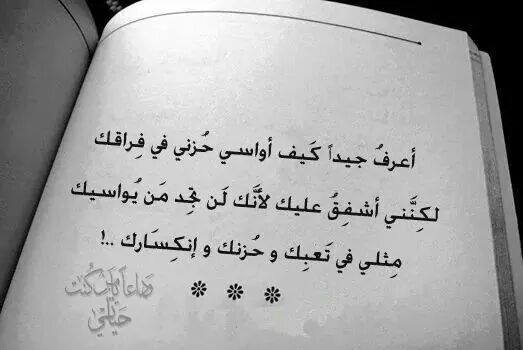 أعرفُ جيداً كَيف أواسي حُزني في فِراقك
لكِنَّني أشفِقُ عليك لأنَّك لَن تجِد مَن يُواسيك
مِثلي في تَعبِك و حُزنك و إنكِسَارك ..!
* * *
وداعاً يا من كنت
حياتي